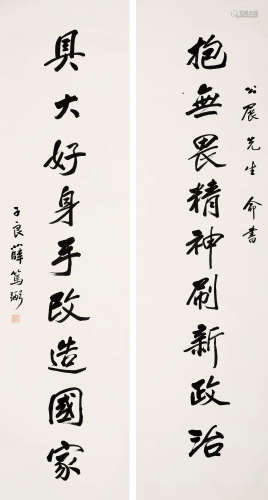 公展先生命書
抱無畏精神刷新政治
具大好身手改造國家
子良薛篤弼